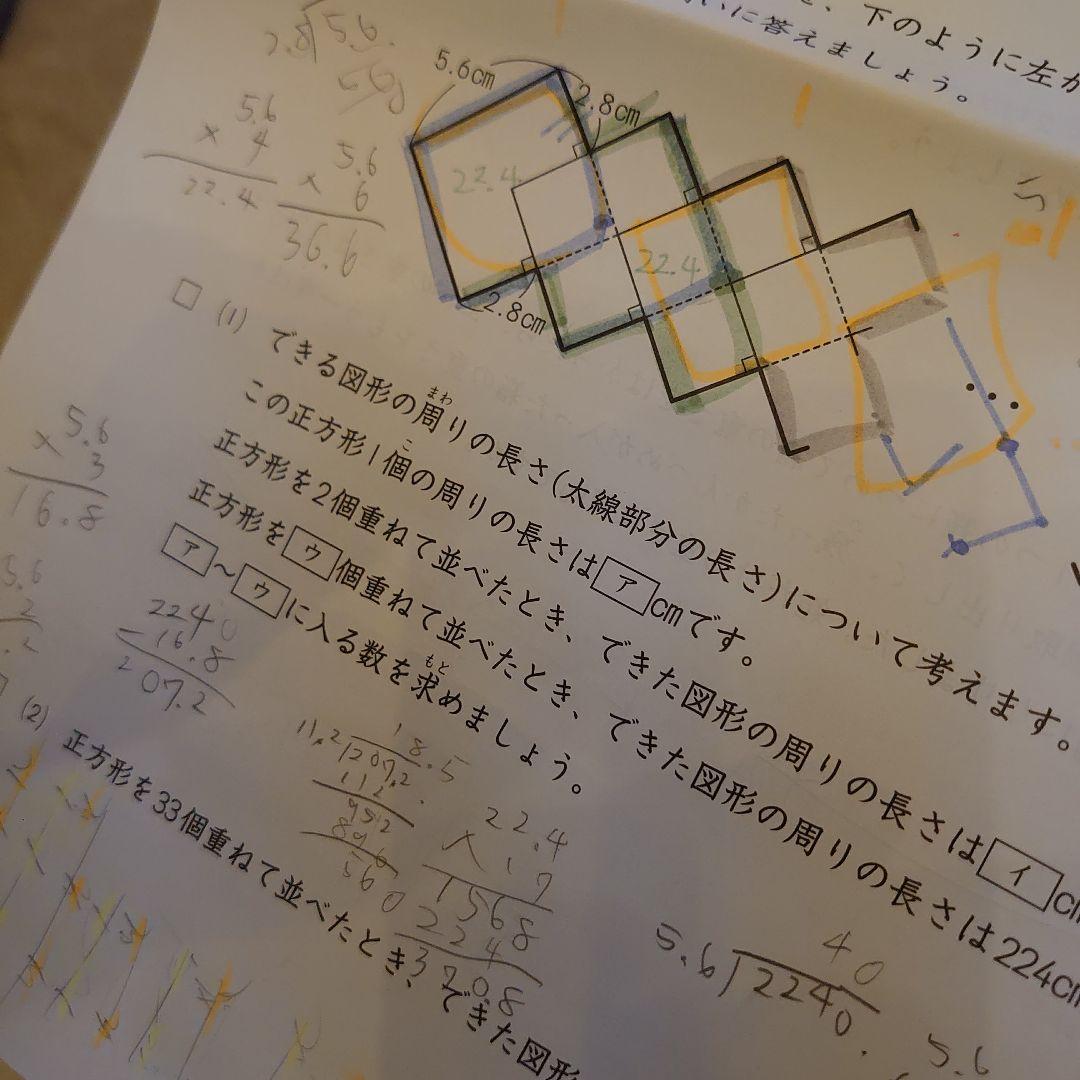 、下のように左か
いに答えましょう。
5.6cm
2.8cm
22.4
22.4
2.8cm
2.8 5.6
5.6
× 4
22.4
5.6
× 6
36.6
(1) できる図形の周りの長さ(太線部分の長さ)について考えます。
まわ
この正方形1個の周りの長さは ア cmです。
こ
正方形を2個重ねて並べたとき、できた図形の周りの長さは イ cm
正方形を ウ 個重ねて並べたとき、できた図形の周りの長さは224cm
ア～ウに入る数を求めましょう。
もと
5.6
× 3
16.8
5.6
2
.2
2240
- 16.8
207.2
(2) 正方形を33個重ねて並べたとき、できた図形
18.5
11.2 207.2
112
952
896
560
22.4
× 17
1568
224
380.8
40
5.6 2240
5.6